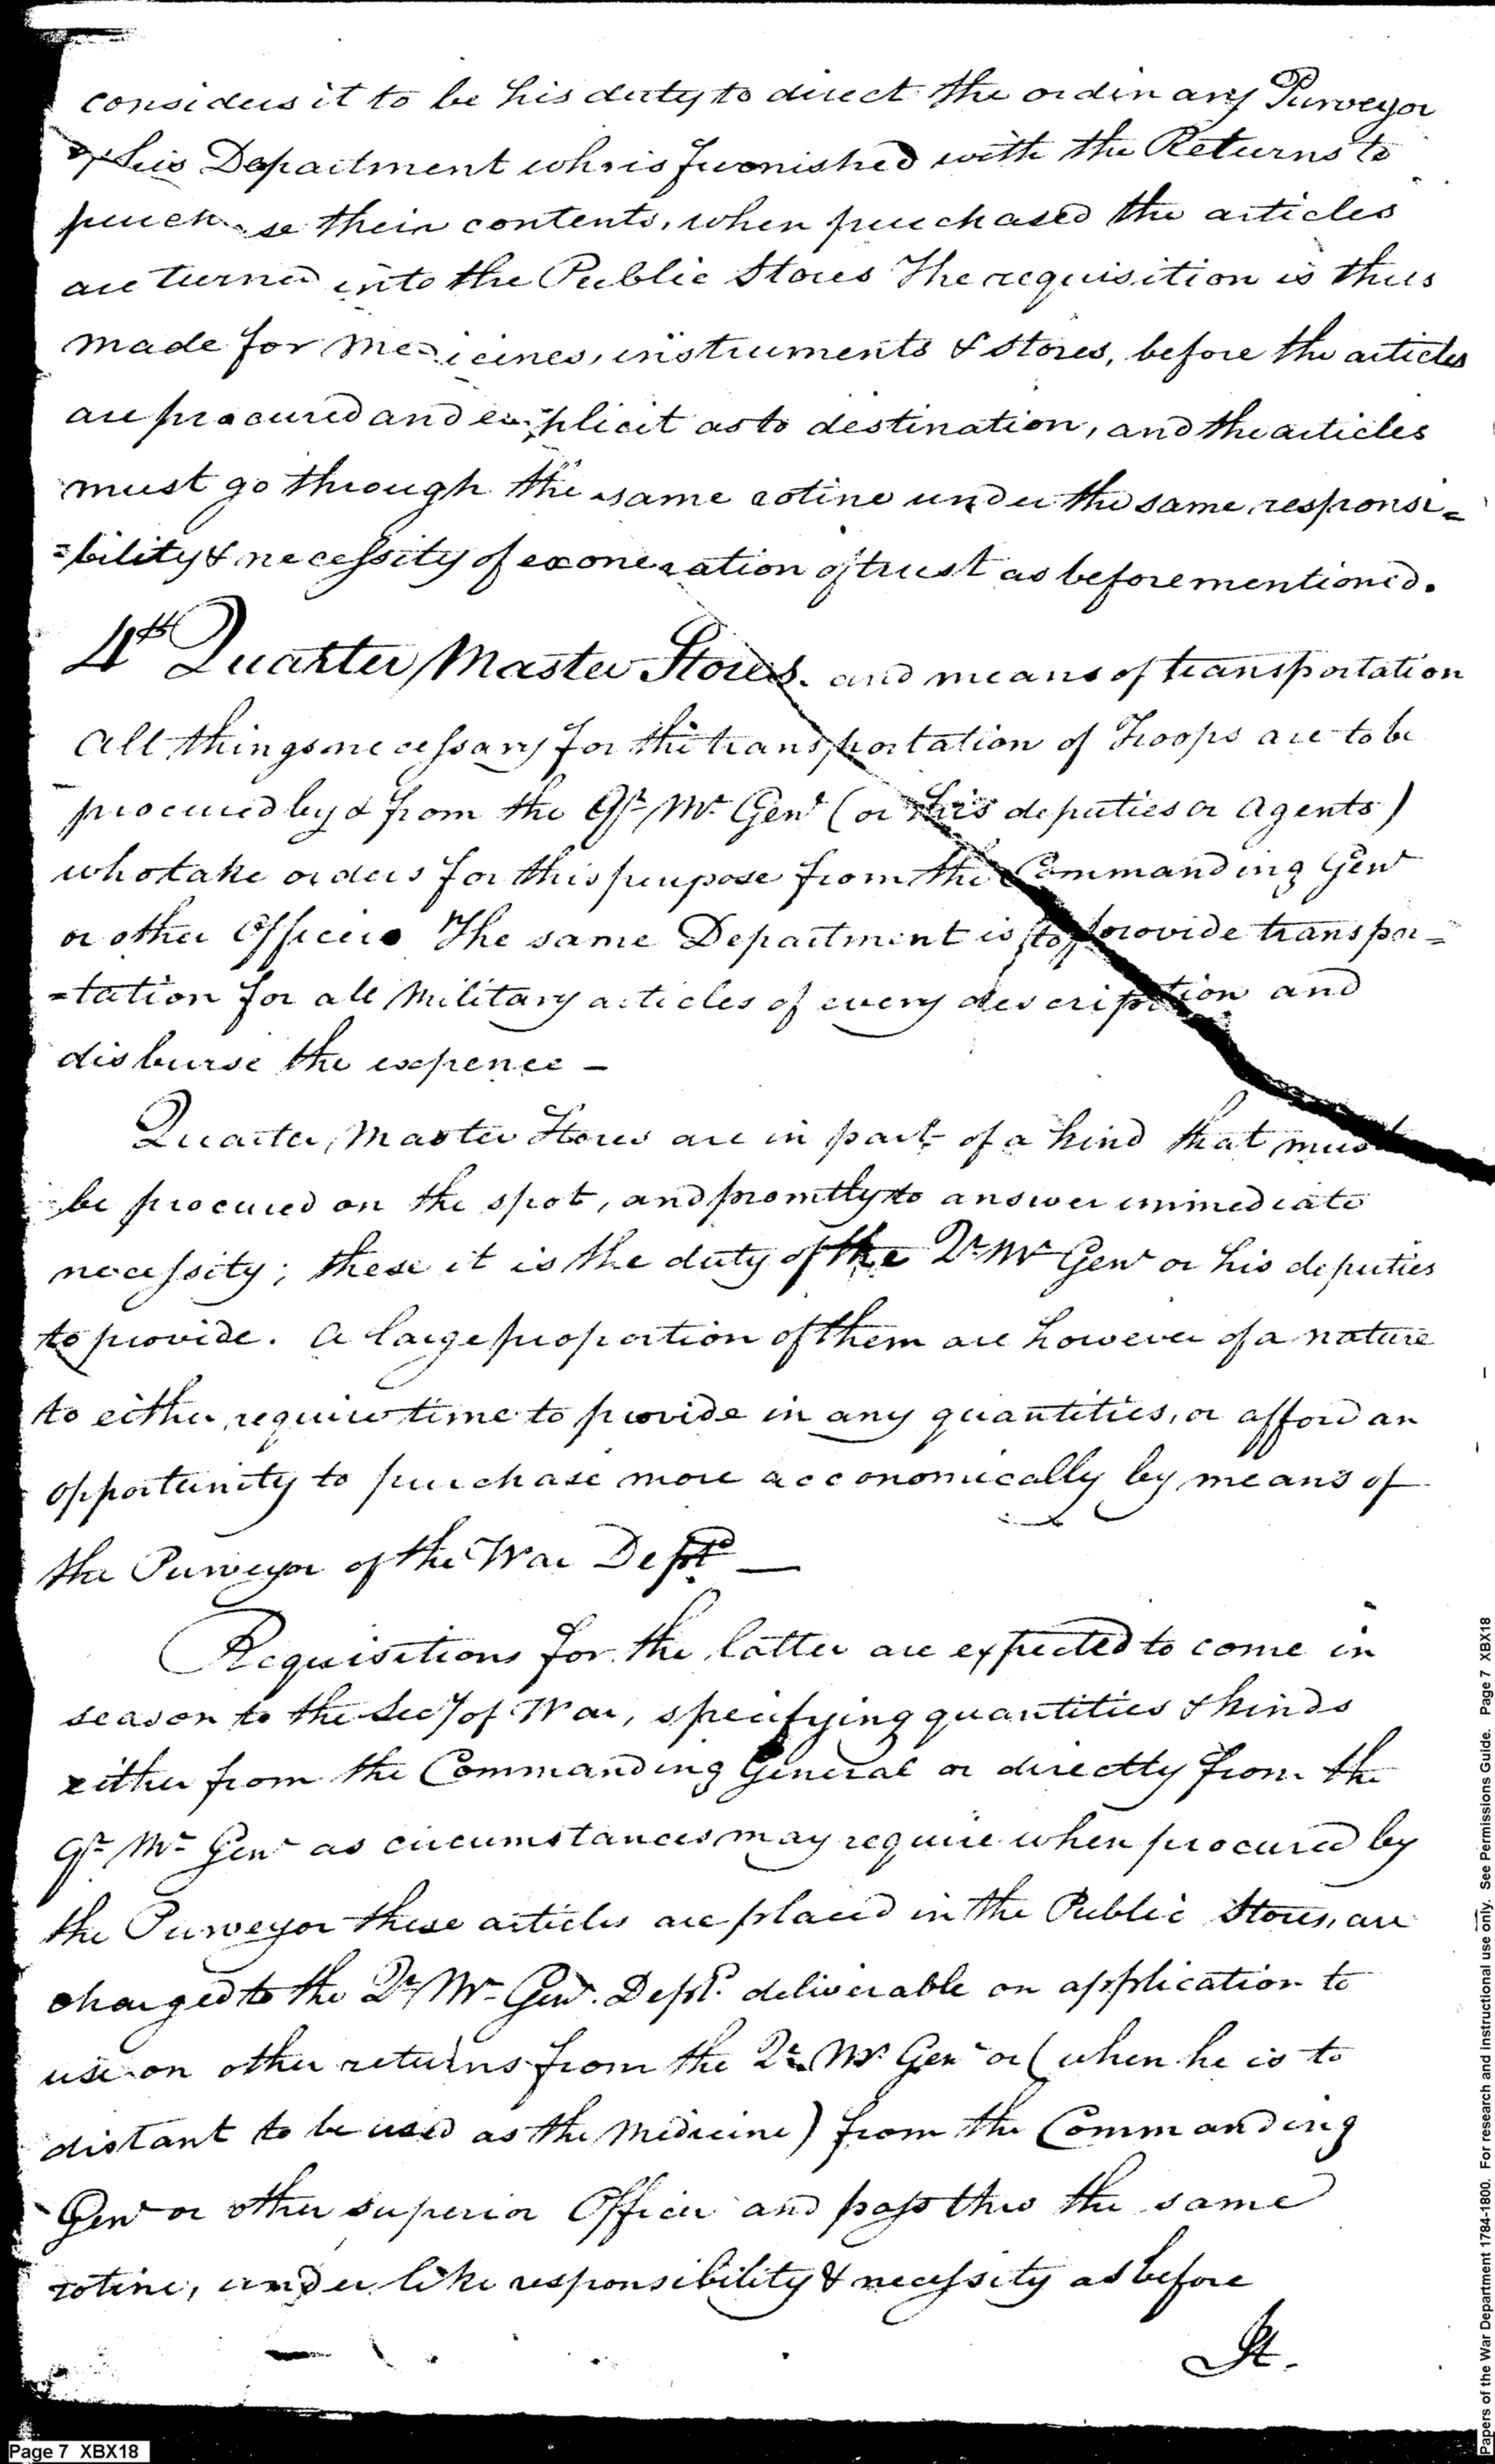 considers it to be his duty to direct the ordinary Purveyor
of his Department who is furnished with the Returns to
purchase their contents, when purchased the articles
are turned into the Public Stores The requisition is thus
made for Medicines, instruments & Stores, before the articles
are procured and explicit as to destination, and the articles
must go through the same rotine under the same responsi=
=bility & necessity of exoneration of trust as beforementioned.
4th Quarter Master Stores. and means of transportation
All things necessary for the transportation of Troops are to be
procured by & from the Qr Mr Genl (or his deputies or Agents)
who take orders for this purpose from the Commanding Genl
or other Officers The same Department is to provide transpor=
=tation for all Military articles of every description and
disburse the expence –
Quarter Master Stores are in part of a kind that must
be procured on the spot, and promtly to answer immediate
necessity; these it is the duty of the Qr Mr Genl or his deputies
to provide. A large proportion of them are however of a nature
to either require time to provide in any quantities, or afford an
opportunity to purchase more acconomically by means of
the Purveyor of the War Dept —
Requisitions for the latter are expected to come in
season to the Secy of War, specifying quantities & kinds
either from the Commanding General or directly from the
Qr Mr Genl as circumstances may require when procured by
the Purveyor these articles are placed in the Public Stores, are
charged to the Qr Mr Genl. Dept. deliverable on application to
use on other returns from the Qr Mr Genl or (when he is to
distant to be used as the Medicine) from the Commanding
Genl or other superior Officer and pass thro the same
rotine, under like responsibility & necessity as before
It.
Page 7 XBX18
Papers of the War Department 1784-1800. For research and instructional use only. See Permissions Guide. Page 7 XBX18